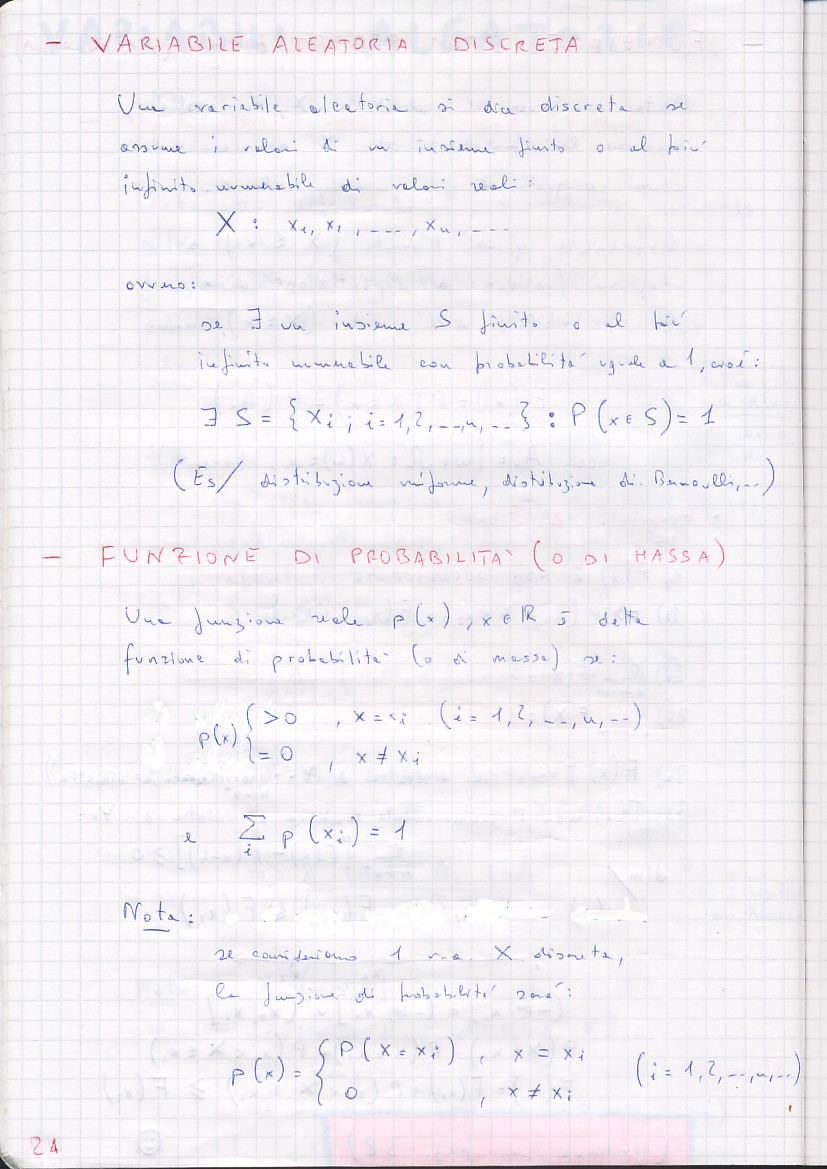 - VARIABILE ALEATORIA DISCRETA
Una variabile aleatoria si dice discreta se
assume i valori di un insieme finito o al piu'
infinito numerabile di valori reali:
X : x₁, x₂, ---, xₙ, ---
ovvero:
se ∃ un insieme S finito o al piu'
infinito numerabile con probabilita' uguale a 1, cioe':
∃ S = { xᵢ ; i = 1,2, --, n, -- } : P (x ∈ S) = 1
(Es/ distribuzione uniforme, distribuzione di Bernoulli, --)
- FUNZIONE DI PROBABILITA' (O DI MASSA)
Una funzione reale p(x), x ∈ ℝ è detta
funzione di probabilita' (o di massa) se:
p(x) { >0 , x = xᵢ (i = 1,2, --, n, --)
= 0 , x ≠ xᵢ
e ∑ᵢ p (xᵢ) = 1
Nota:
se consideriamo 1 v.a. X discreta,
la funzione di probabilita' sara':
p(x) = { P(X = xᵢ) , x = xᵢ (i = 1,2, --, n, --)
0 , x ≠ xᵢ
24